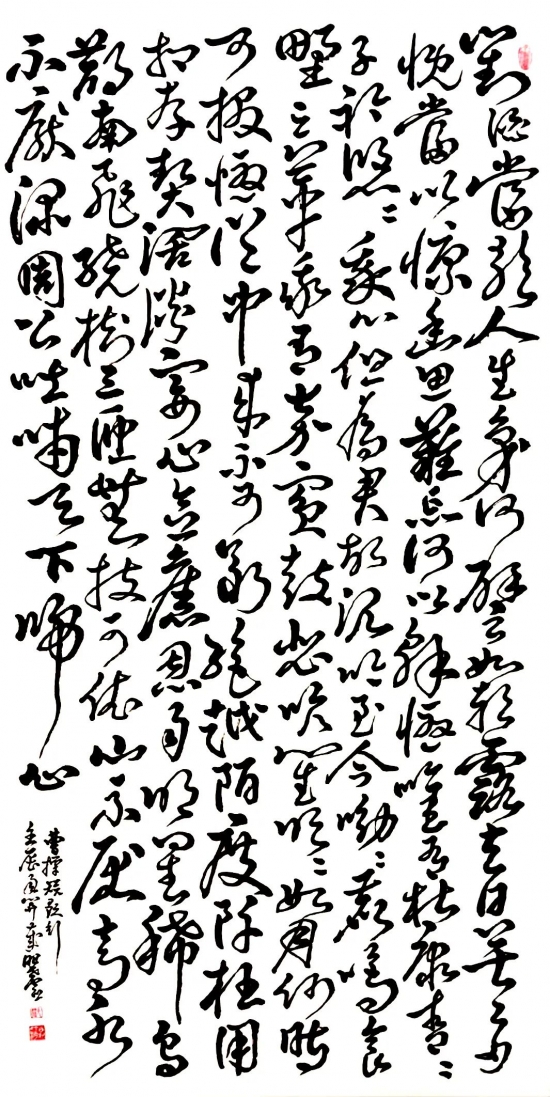 對酒當歌人生幾何譬如朝露去日苦多
慨當以慷幽思難忘何以解憂唯有杜康青々
子衿悠々我心但為君故沉吟至今呦々鹿鳴食
野之苹我有嘉賓鼓瑟吹笙明々如月何時
可掇憂從中來不可斷絕越陌度阡枉用
相存契闊談宴心念舊恩月明星稀烏
鵲南飛繞樹三匝無枝可依山不厭高水
不厭深周公吐哺天下歸心
曹操短歌行